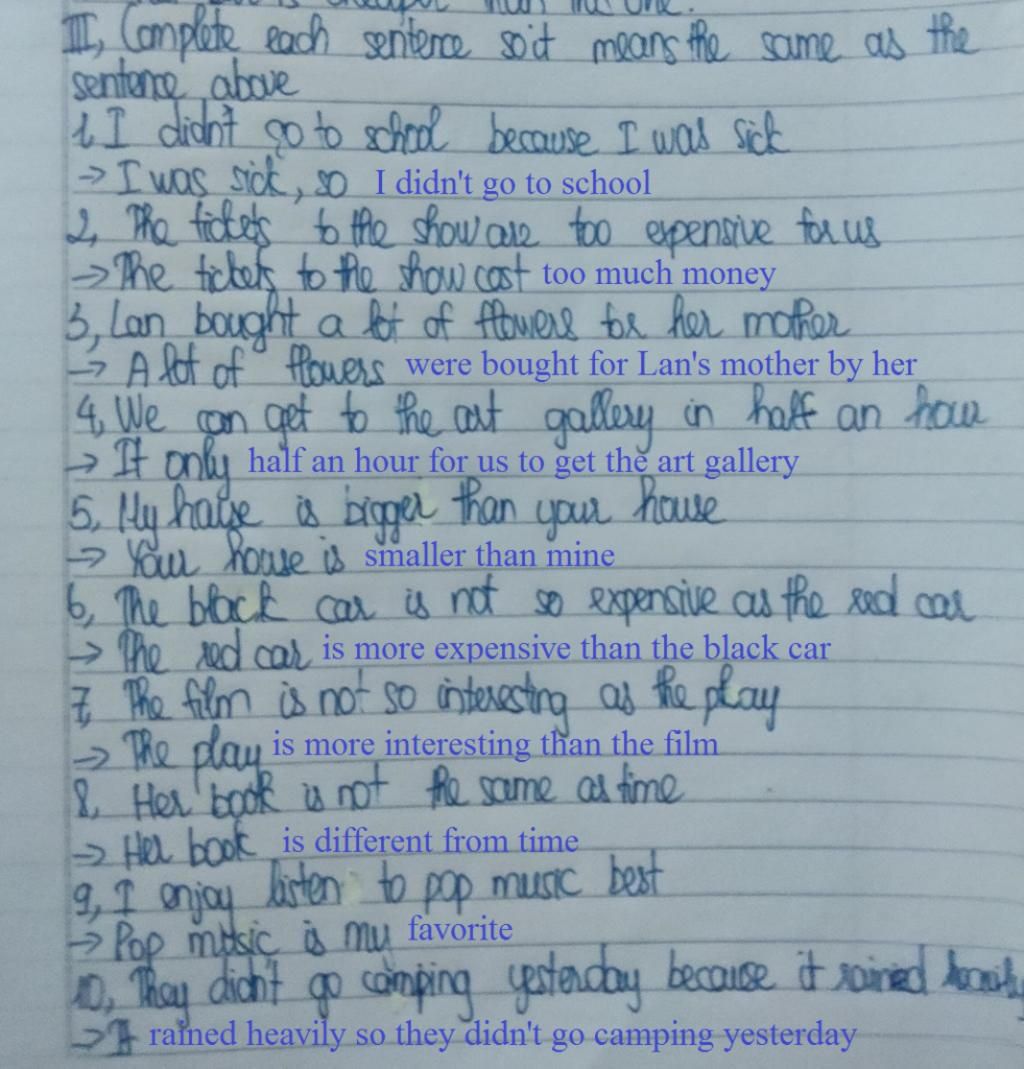 than the one.
III, Complete each sentence so it means the same as the
sentence above
1, I didn't go to school because I was sick
→ I was sick, so I didn't go to school
2, The tickets to the show are too expensive for us
→ The tickets to the show cost too much money
3, Lan bought a lot of flowers for her mother
→ A lot of flowers were bought for Lan's mother by her
4, We can get to the art gallery in half an hour
→ It only half an hour for us to get the art gallery
5, My house is bigger than your house
→ Your house is smaller than mine
6, The black car is not so expensive as the red car
→ The red car is more expensive than the black car
7, The film is not so interesting as the play
→ The play is more interesting than the film
8, Her book is not the same as time
→ Her book is different from time
9, I enjoy listen to pop music best
→ Pop music is my favorite
10, They didn't go camping yesterday because it rained heavily
→ It rained heavily so they didn't go camping yesterday